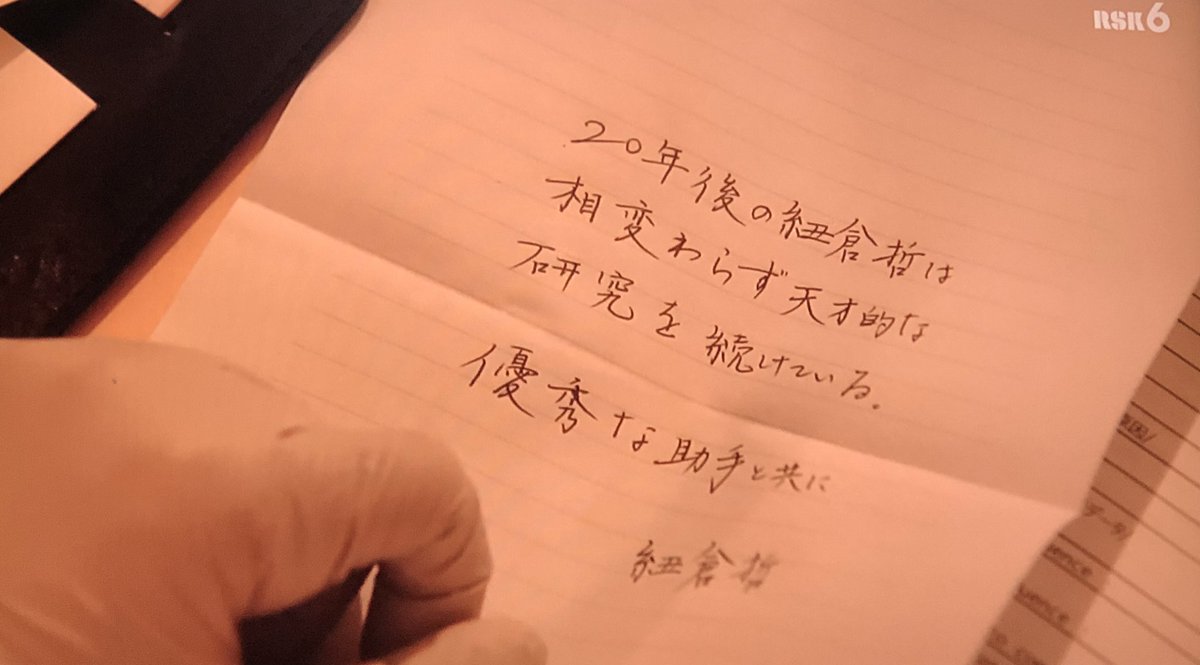 RSK6
20年後の紐倉哲は
相変わらず天才的な
研究を続けている。
優秀な助手と共に
紐倉哲
データ
uence